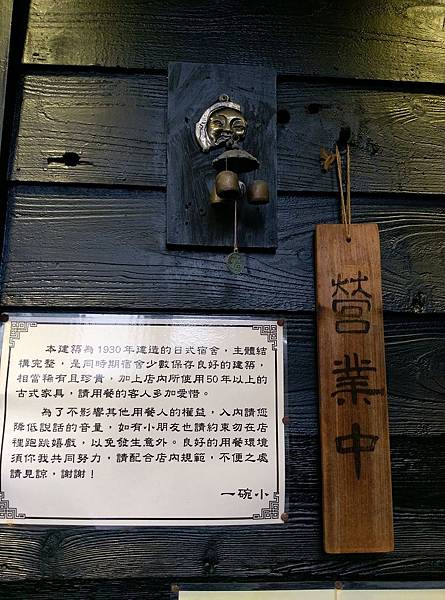 本建築為1930年建造的日式宿舍，主體結
構完整，是同時期宿舍少數保存良好的建築，
相當稀有且珍貴，加上店內所使用50年以上的
古式家具，請用餐的客人多加愛惜。
為了不影響其他用餐人的權益，入內請您
降低說話的音量，如有小朋友也請約束勿在店
裡跑跳嬉戲，以免發生意外。良好的用餐環境
須你我共同努力，請配合店內規範，不便之處
請見諒，謝謝！
一碗小
營業中